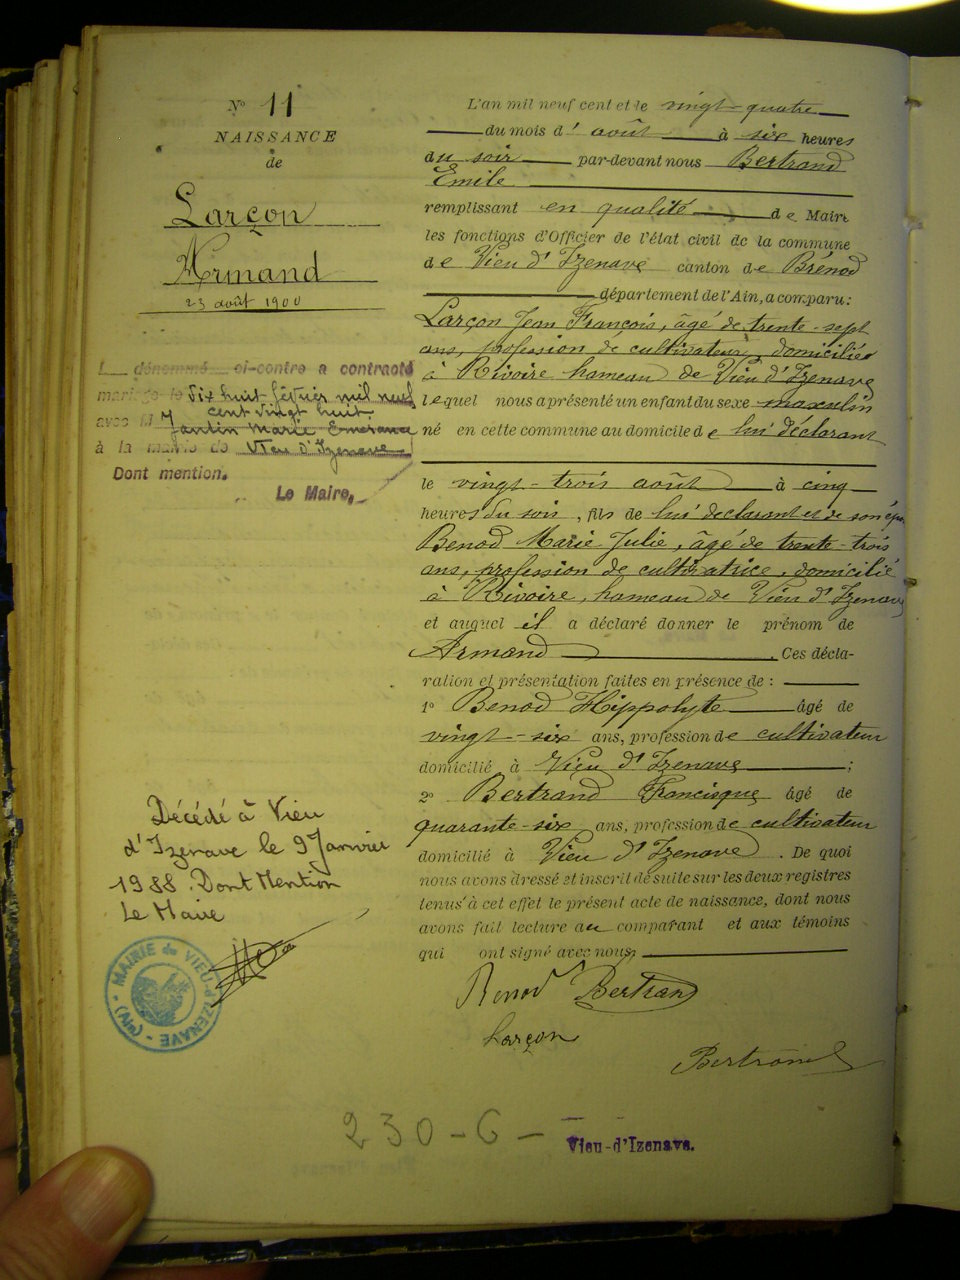 N° 11
NAISSANCE
de
Larçon
Armand
23 août 1900
L dénommé ci-contre a contracté
mariage le dix huit février mil neuf
cent vingt huit
avec M
Jantin Marie Emerance
à la mairie de Vieu d'Izenave
Dont mention.
Le Maire,
Décédé à Vieu
d'Izenave le 9 Janvier
1988. Dont Mention
Le Maire
MAIRIE de VIEU-d'IZENAVE - (Ain) -
L'an mil neuf cent et le vingt-quatre
du mois d' août à six heures
du soir par-devant nous Bertrand
Emile
remplissant en qualité de Maire
les fonctions d'Officier de l'état civil de la commune
de Vieu d'Izenave canton de Brénod
département de l'Ain, a comparu:
Larçon Jean François, âgé de trente-sept
ans, profession de cultivateur, domicilié
à Rivoire hameau de Vieu d'Izenave
lequel nous a présenté un enfant du sexe masculin
né en cette commune au domicile de lui déclarant
le vingt-trois août à cinq
heures du soir, fils de lui déclarant et de son
Benod Marie Julie, âgé de trente-trois
ans, profession de cultivatrice, domicilié
à Rivoire, hameau de Vieu d'Izenave
et auquel il a déclaré donner le prénom de
Armand . Ces décla-
ration et présentation faites en présence de :
1° Benod Hippolyte âgé de
vingt-six ans, profession de cultivateur
domicilié à Vieu d'Izenave ;
2° Bertrand Francisque âgé de
quarante-six ans, profession de cultivateur
domicilié à Vieu d'Izenave . De quoi
nous avons dressé et inscrit de suite sur les deux registres
tenus à cet effet le présent acte de naissance, dont nous
avons fait lecture au comparant et aux témoins
qui ont signé avec nous.
Benod Bertrand
Larçon
Bertrand
230-G-
Vieu-d'Izenave.